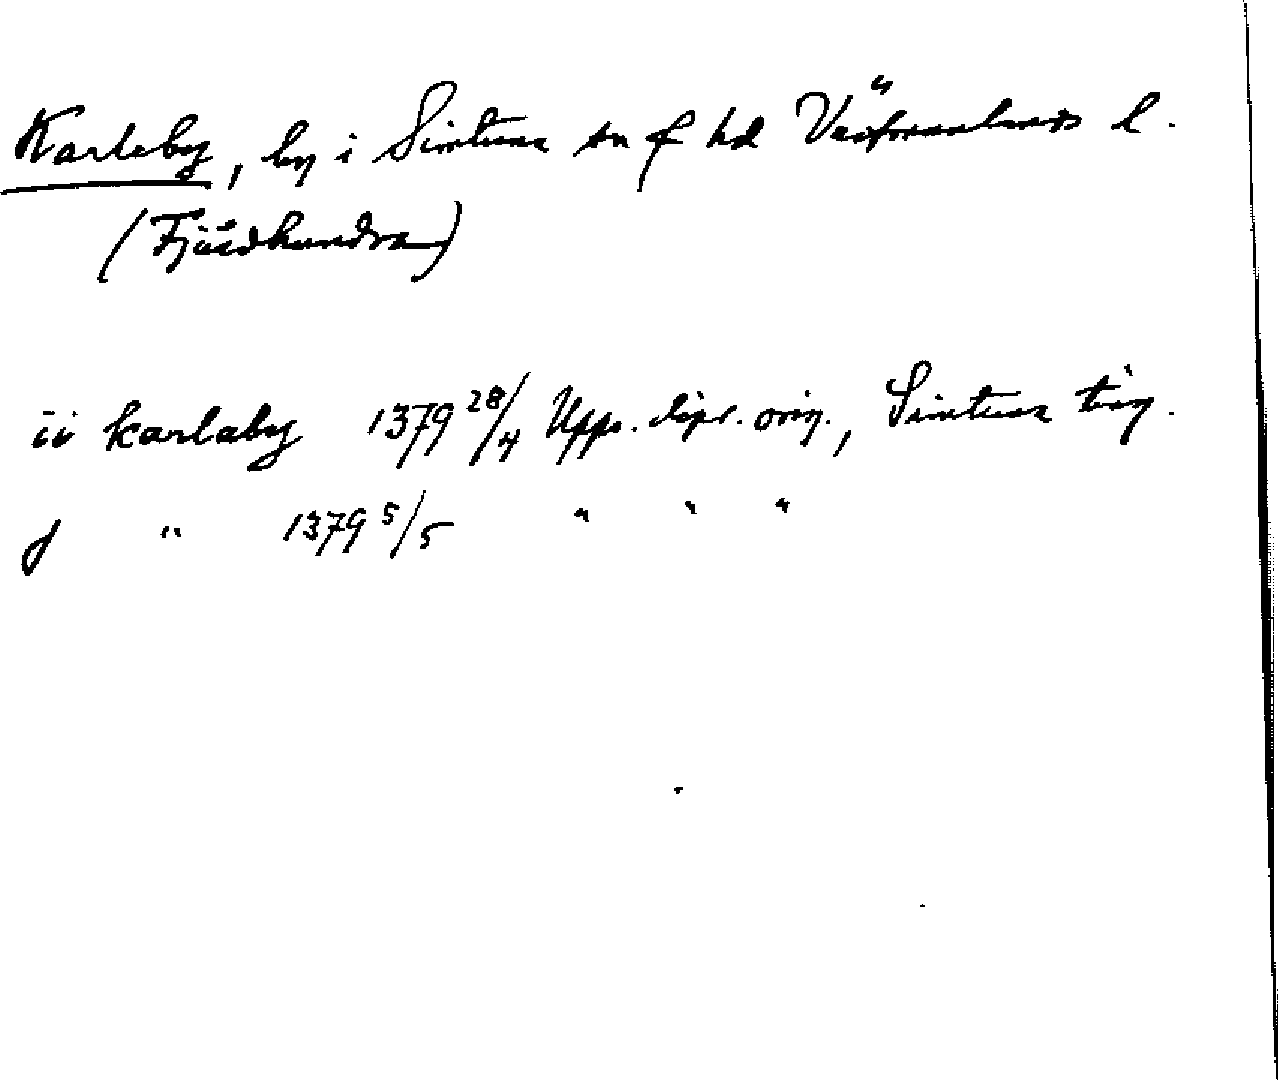 Karleby, by i Simtuna sn f hd Västmanlands l.
(Fjärdhundra)
ii karlaby 1379 28/4 Upps. dipl. orig., Simtuna ting.
j " 1379 5/5 " " "